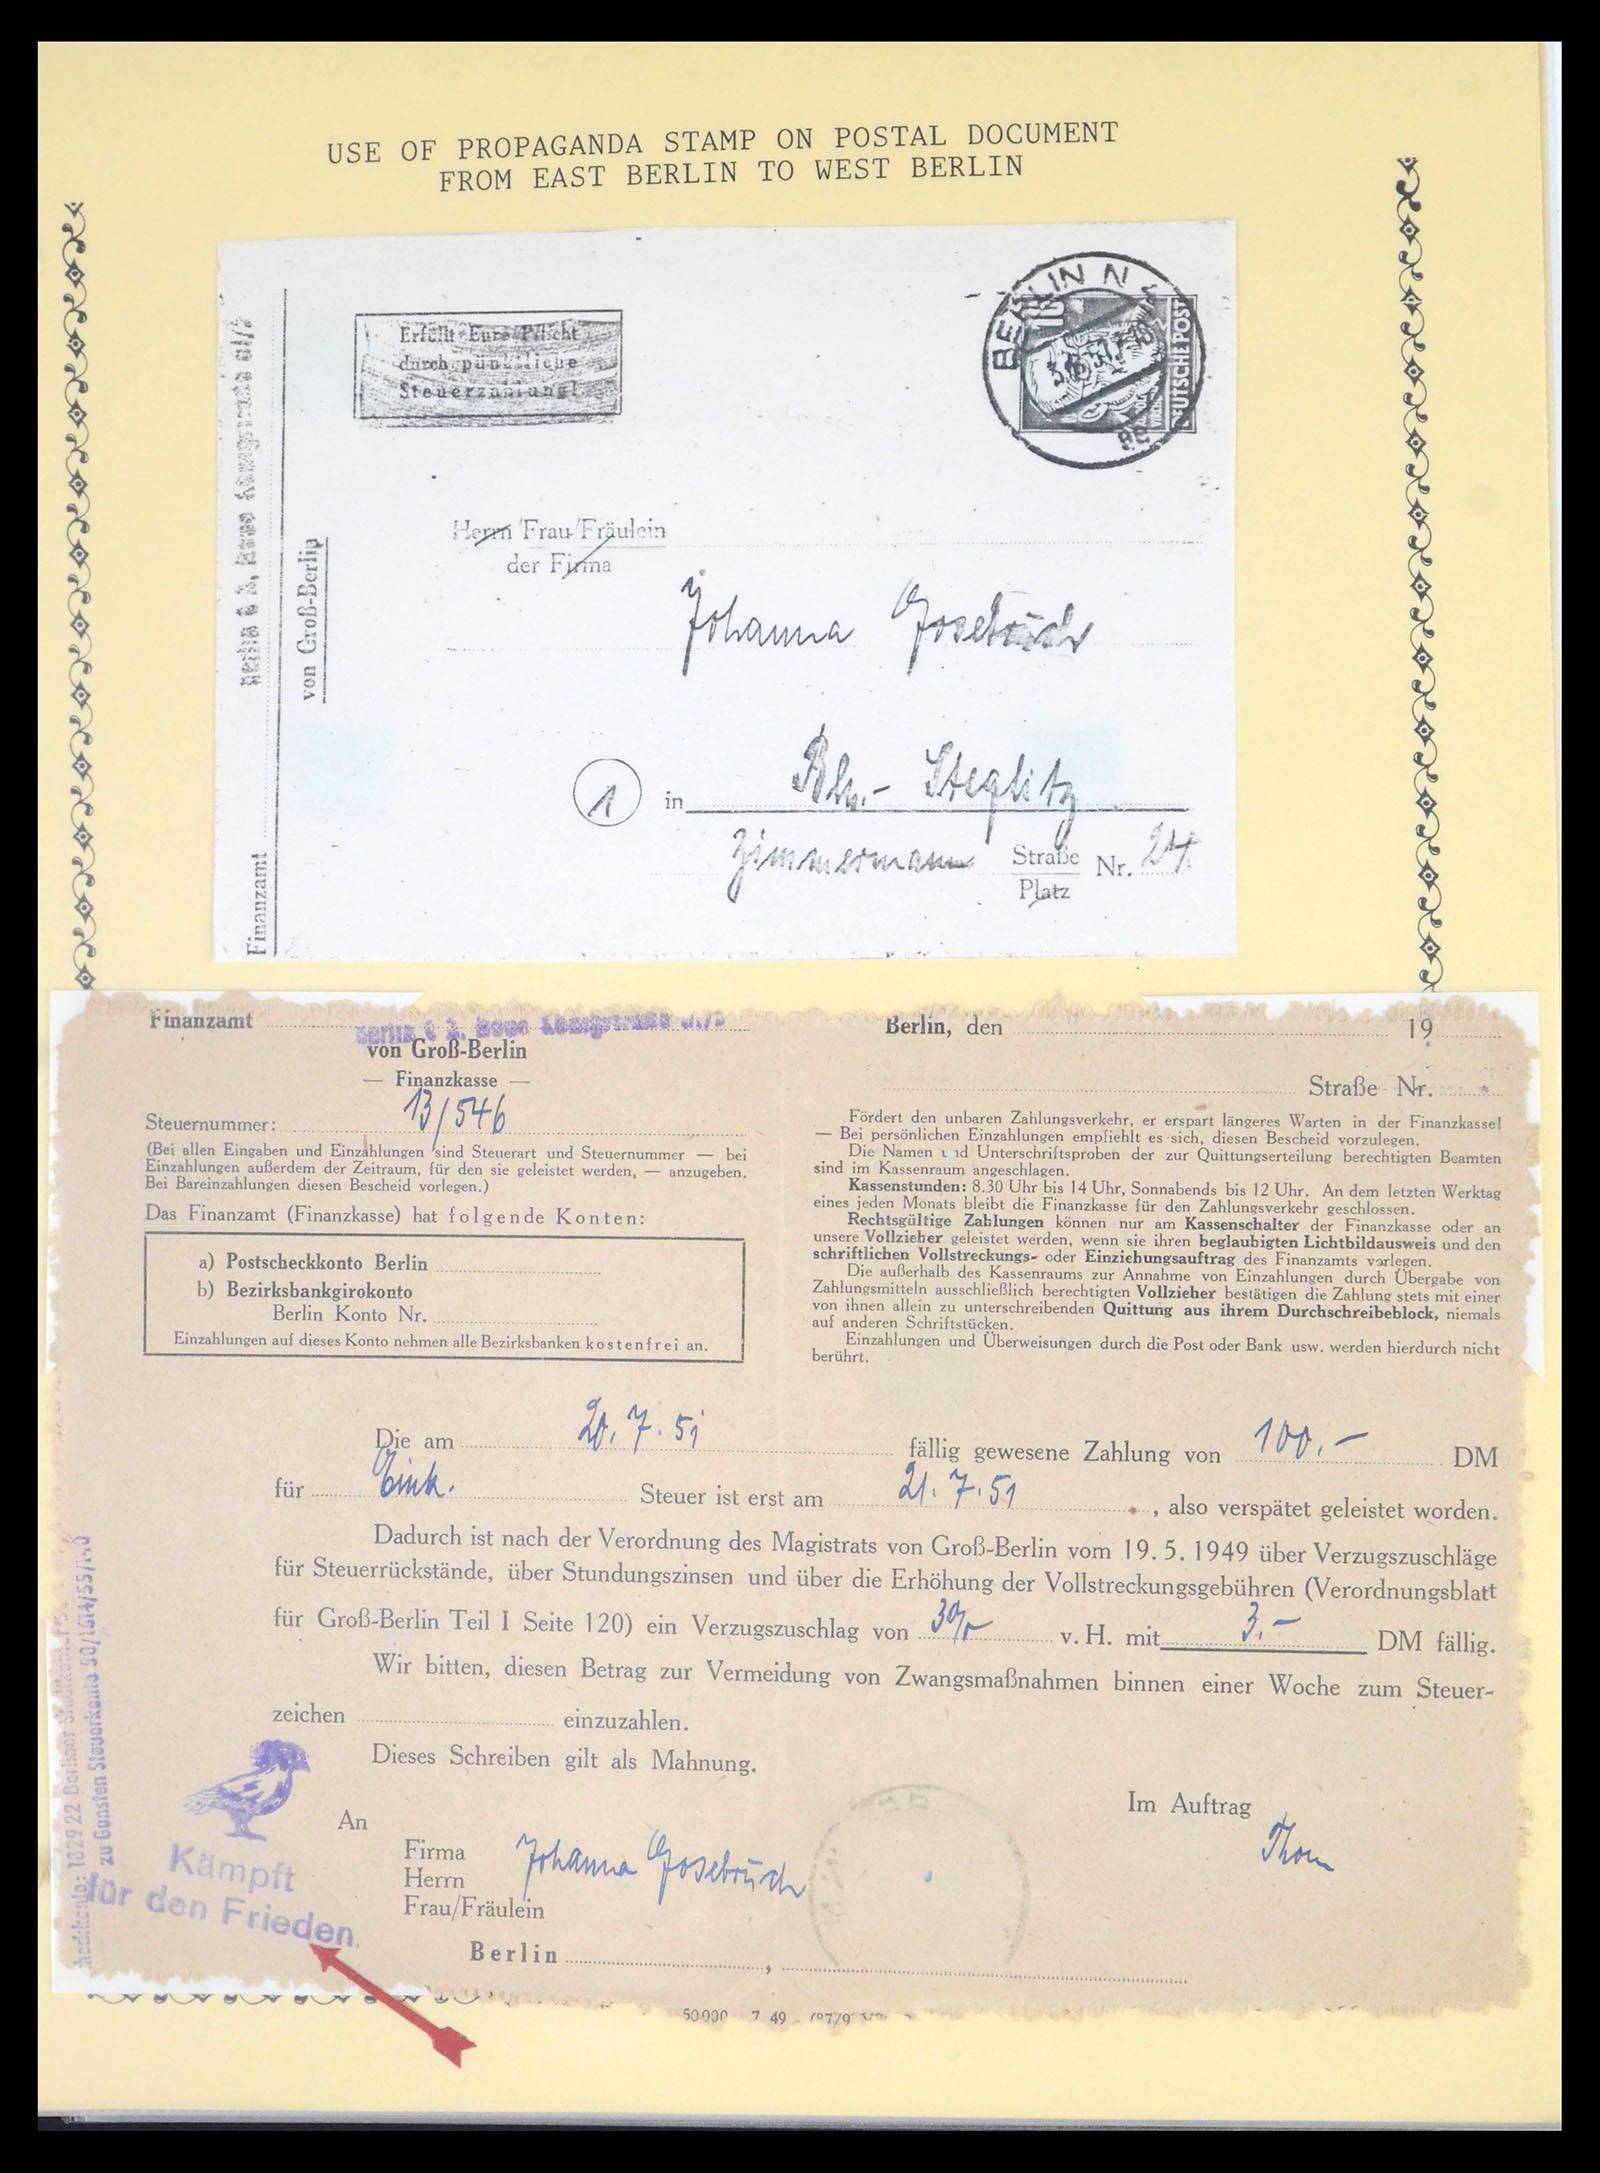 USE OF PROPAGANDA STAMP ON POSTAL DOCUMENT
FROM EAST BERLIN TO WEST BERLIN
BERLIN N
DEUTSCHE POST
Erfüllt Eure Pflicht
durch pünktliche
Steuerzahlung!
Finanzamt
von Groß-Berlin
Herrn/Frau/Fräulein
der Firma
Johanna Gosebruch
1 in Bln.- Steglitz
Zimmermann Straße Nr. 24
Platz
Finanzamt Berlin C 2, Neue Königstraße
von Groß-Berlin
— Finanzkasse —
Steuernummer: 13/546
(Bei allen Eingaben und Einzahlungen sind Steuerart und Steuernummer — bei
Einzahlungen außerdem der Zeitraum, für den sie geleistet werden, — anzugeben.
Bei Bareinzahlungen diesen Bescheid vorlegen.)
Das Finanzamt (Finanzkasse) hat folgende Konten:
a) Postscheckkonto Berlin
b) Bezirksbankgirokonto
Berlin Konto Nr.
Einzahlungen auf dieses Konto nehmen alle Bezirksbanken kostenfrei an.
Berlin, den 19
Straße Nr.
Fördert den unbaren Zahlungsverkehr, er erspart längeres Warten in der Finanzkasse!
— Bei persönlichen Einzahlungen empfiehlt es sich, diesen Bescheid vorzulegen.
Die Namen und Unterschriftsproben der zur Quittungserteilung berechtigten Beamten
sind im Kassenraum angeschlagen.
Kassenstunden: 8.30 Uhr bis 14 Uhr, Sonnabends bis 12 Uhr. An dem letzten Werktag
eines jeden Monats bleibt die Finanzkasse für den Zahlungsverkehr geschlossen.
Rechtsgültige Zahlungen können nur am Kassenschalter der Finanzkasse oder an
unsere Vollzieher geleistet werden, wenn sie ihren beglaubigten Lichtbildausweis und den
schriftlichen Vollstreckungs- oder Einziehungsauftrag des Finanzamts vorlegen.
Die außerhalb des Kassenraums zur Annahme von Einzahlungen durch Übergabe von
Zahlungsmitteln ausschließlich berechtigten Vollzieher bestätigen die Zahlung stets mit einer
von ihnen allein zu unterschreibenden Quittung aus ihrem Durchschreibeblock, niemals
auf anderen Schriftstücken.
Einzahlungen und Überweisungen durch die Post oder Bank usw. werden hierdurch nicht
berührt.
Die am 20. 7. 51 fällig gewesene Zahlung von 100.- DM
für Eink. Steuer ist erst am 21. 7. 51, also verspätet geleistet worden.
Dadurch ist nach der Verordnung des Magistrats von Groß-Berlin vom 19. 5. 1949 über Verzugszuschläge
für Steuerrückstände, über Stundungszinsen und über die Erhöhung der Vollstreckungsgebühren (Verordnungsblatt
für Groß-Berlin Teil I Seite 120) ein Verzugszuschlag von 3% v. H. mit 3.- DM fällig.
Wir bitten, diesen Betrag zur Vermeidung von Zwangsmaßnahmen binnen einer Woche zum Steuer-
zeichen einzuzahlen.
Dieses Schreiben gilt als Mahnung.
Im Auftrag
Thom
An
Firma
Herrn Johanna Gosebruch
Frau/Fräulein
Berlin ,
Kämpft
für den Frieden.
zu Gunsten Steuerkonto
50 000 7 49